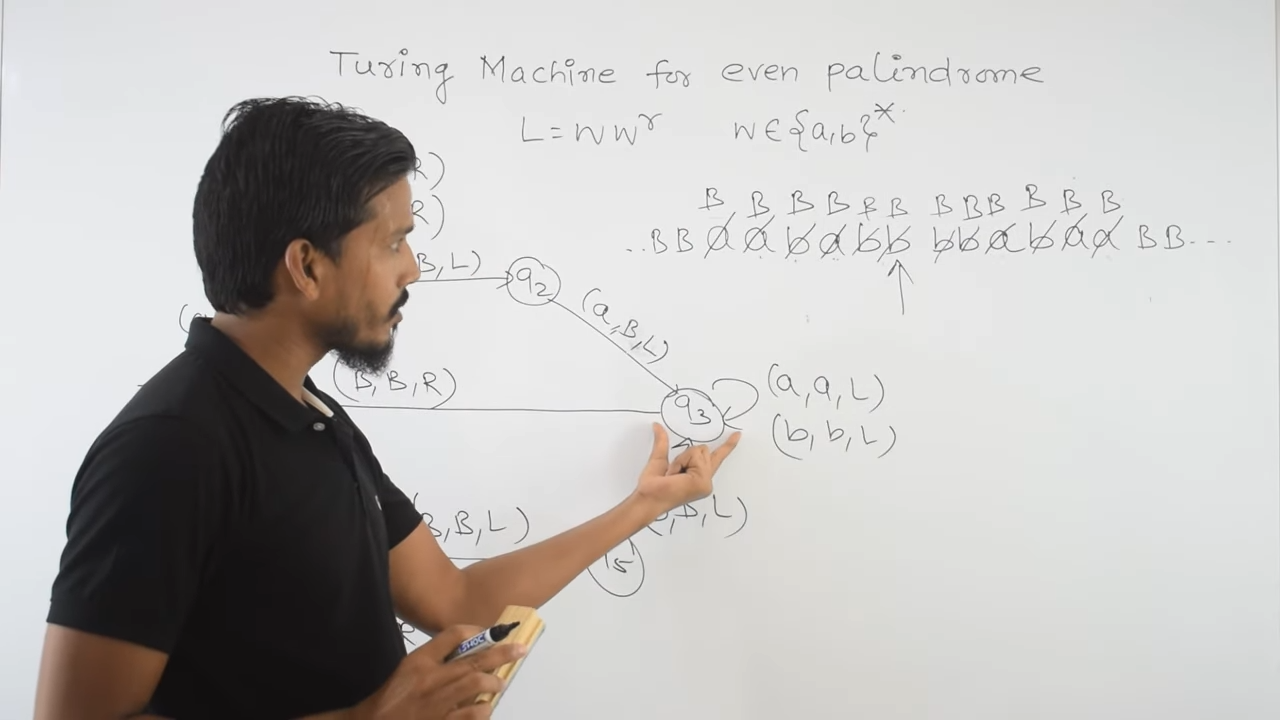 Turing Machine for even palindrome
L = w wʳ   w ∈ {a,b}*
R)
R)
B B B B B B B B B B B B
..BB a a b a b b b b a b a a BB---
B, L)
q2
(a, B, L)
(
(B, B, R)
q3
(a, a, L)
(b, b, L)
B, B, L)
B, L)
5
R